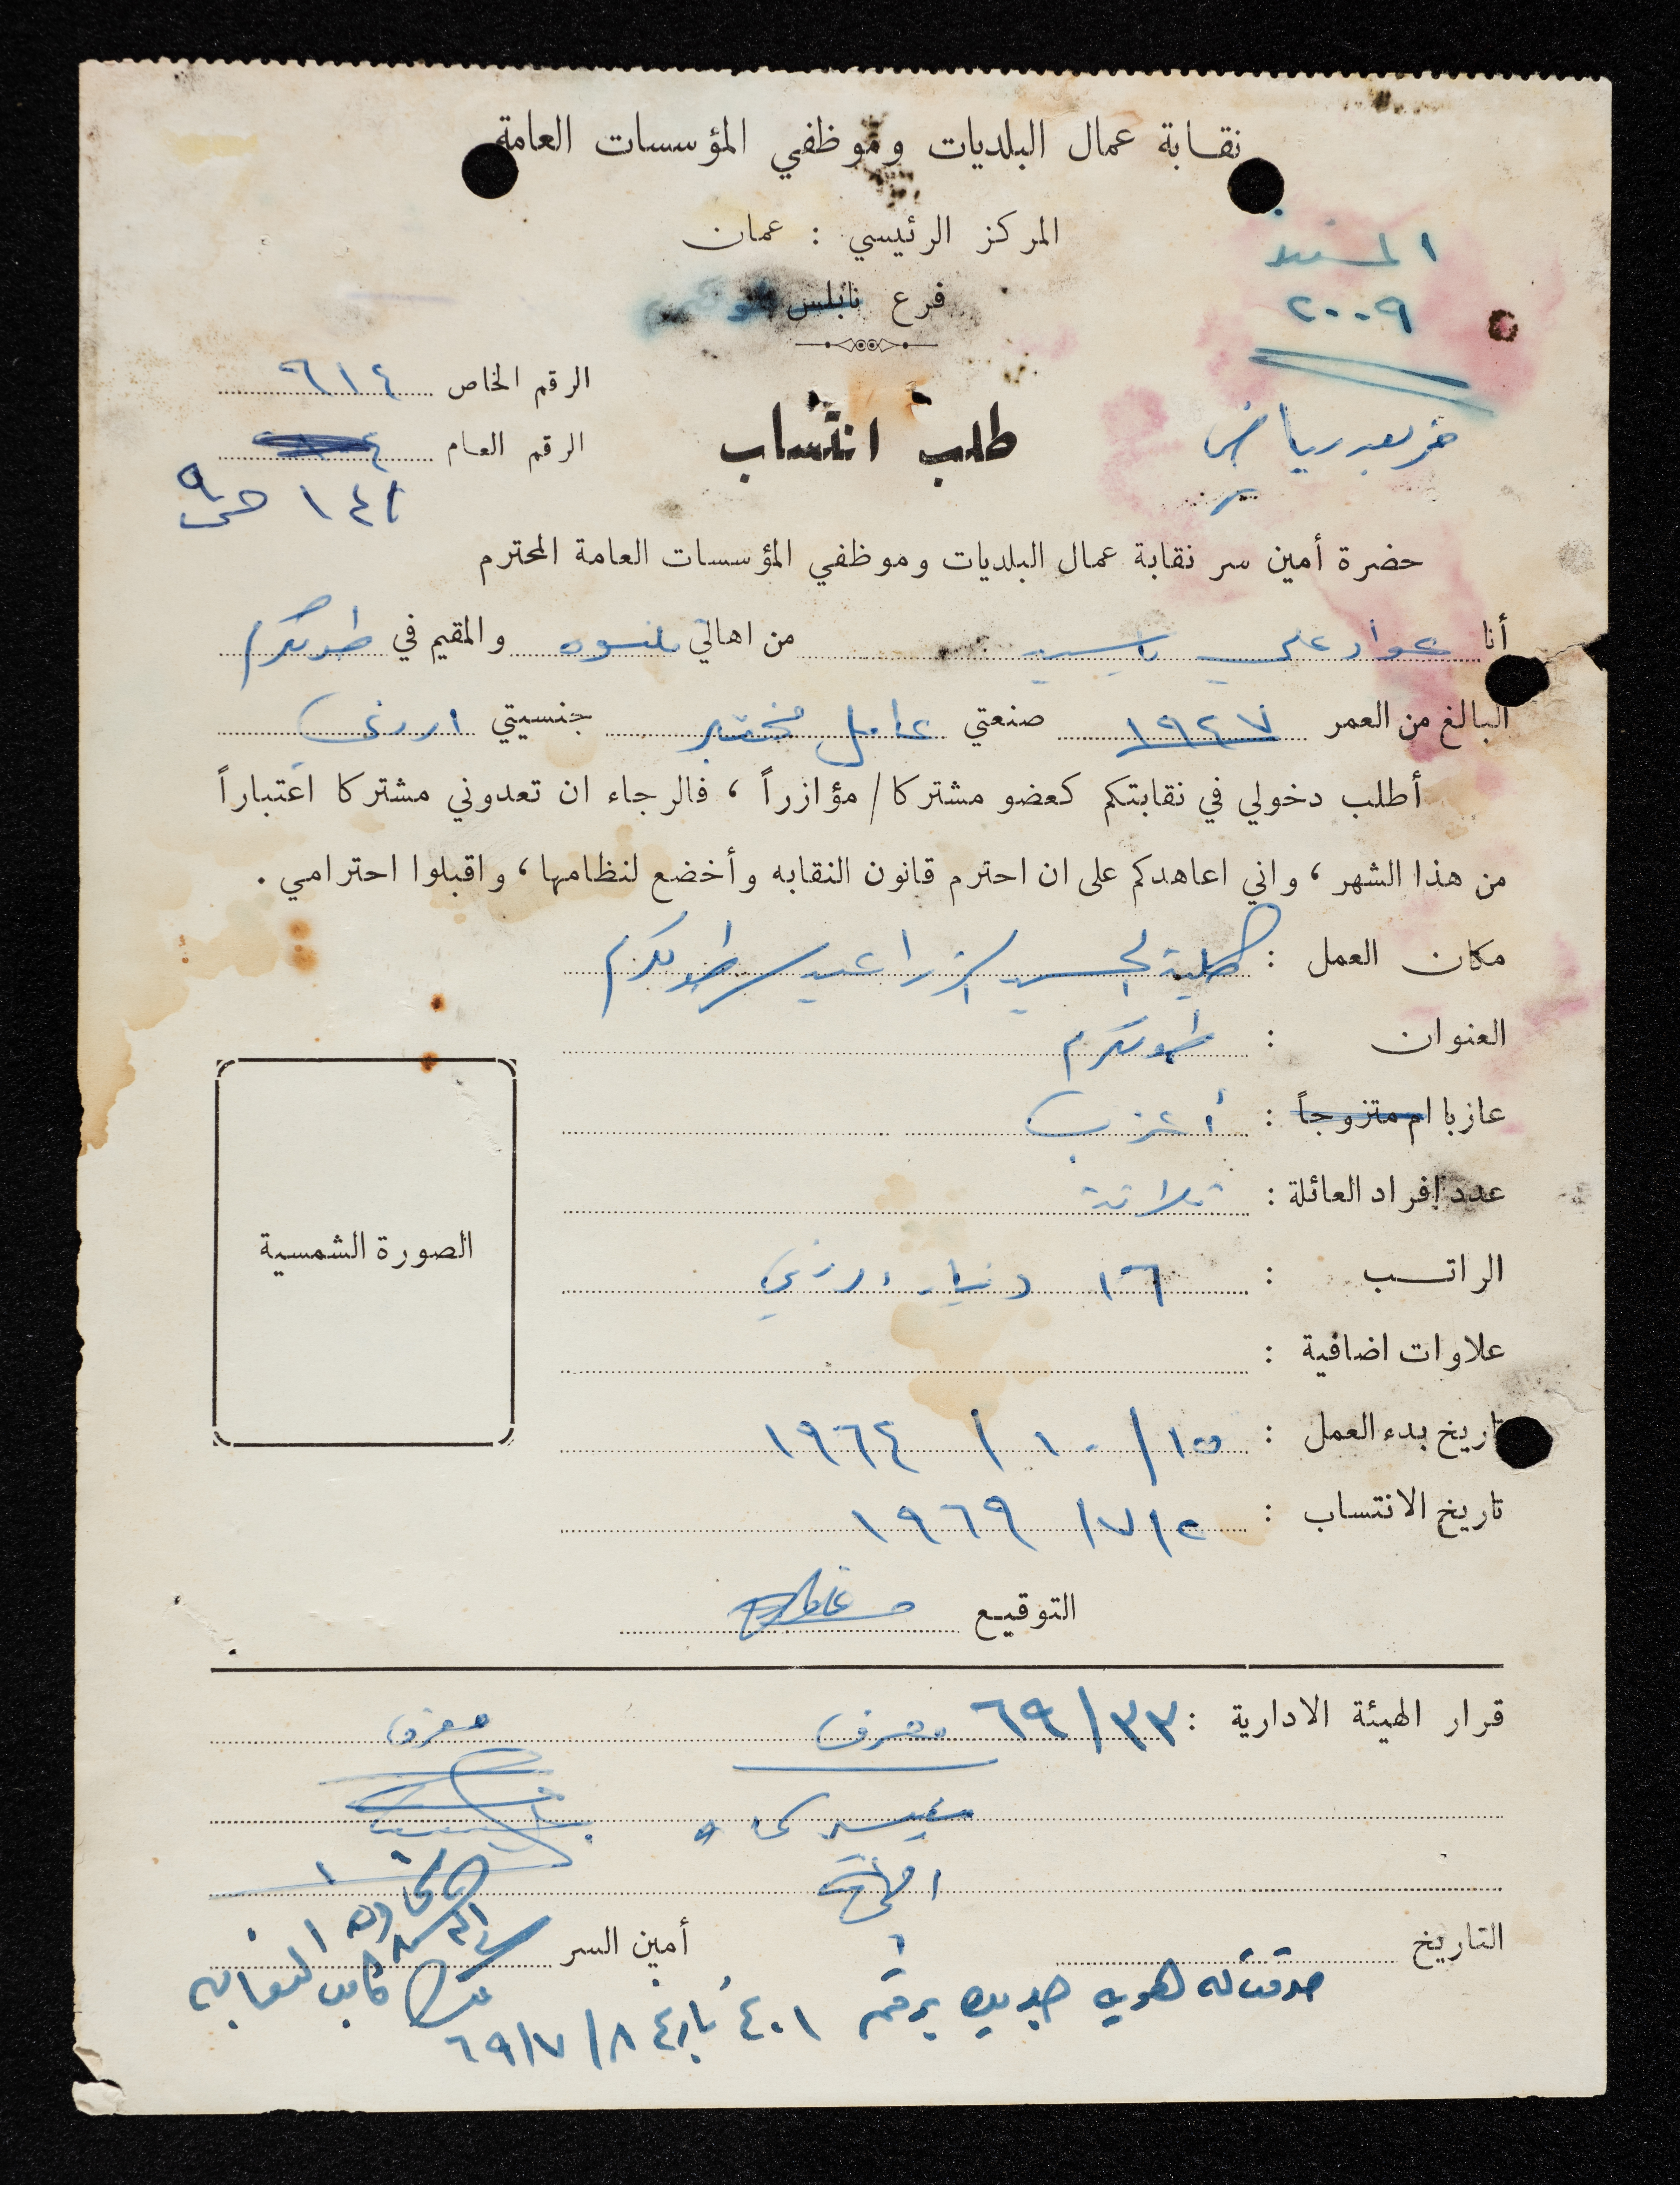 نقابة عمال البلديات وموظفي المؤسسات العامة
المركز الرئيسي : عمان
فرع نابلس
٢٠٠٩
الرقم الخاص ٦١٤
الرقم العام
١٤١
طلب انتساب
حضرة أمين سر نقابة عمال البلديات وموظفي المؤسسات العامة المحترم
أنا عواد علي ياسين من اهالي قلنسوه والمقيم في طولكرم
البالغ من العمر ١٩٤٧ صنعتي عامل مختبر جنسيتي اردني
أطلب دخولي في نقابتكم كعضو مشتركا / مؤازراً ، فالرجاء ان تعدوني مشتركا اعتباراً
من هذا الشهر ، واني اعاهدكم على ان احترم قانون النقابه وأخضع لنظامها ، واقبلوا احترامي .
مكان العمل : كلية الحسين الزراعية / طولكرم
العنوان : طولكرم
عازبا ام متزوجاً : أعزب
عدد افراد العائلة : ثلاثة
الراتب : ١٦ دينار اردني
علاوات اضافية :
تاريخ بدء العمل : ١٥ / ١٠ / ١٩٦٤
تاريخ الانتساب : ٢ / ٧ / ١٩٦٩
الصورة الشمسية
التوقيع
قرار الهيئة الادارية : ٣٣ / ٦٩
التاريخ
أمين السر
صرفت له هويه جديده برقم ٤٠١ تاريخ ٨ / ٧ / ٦٩
كاتب النقابه